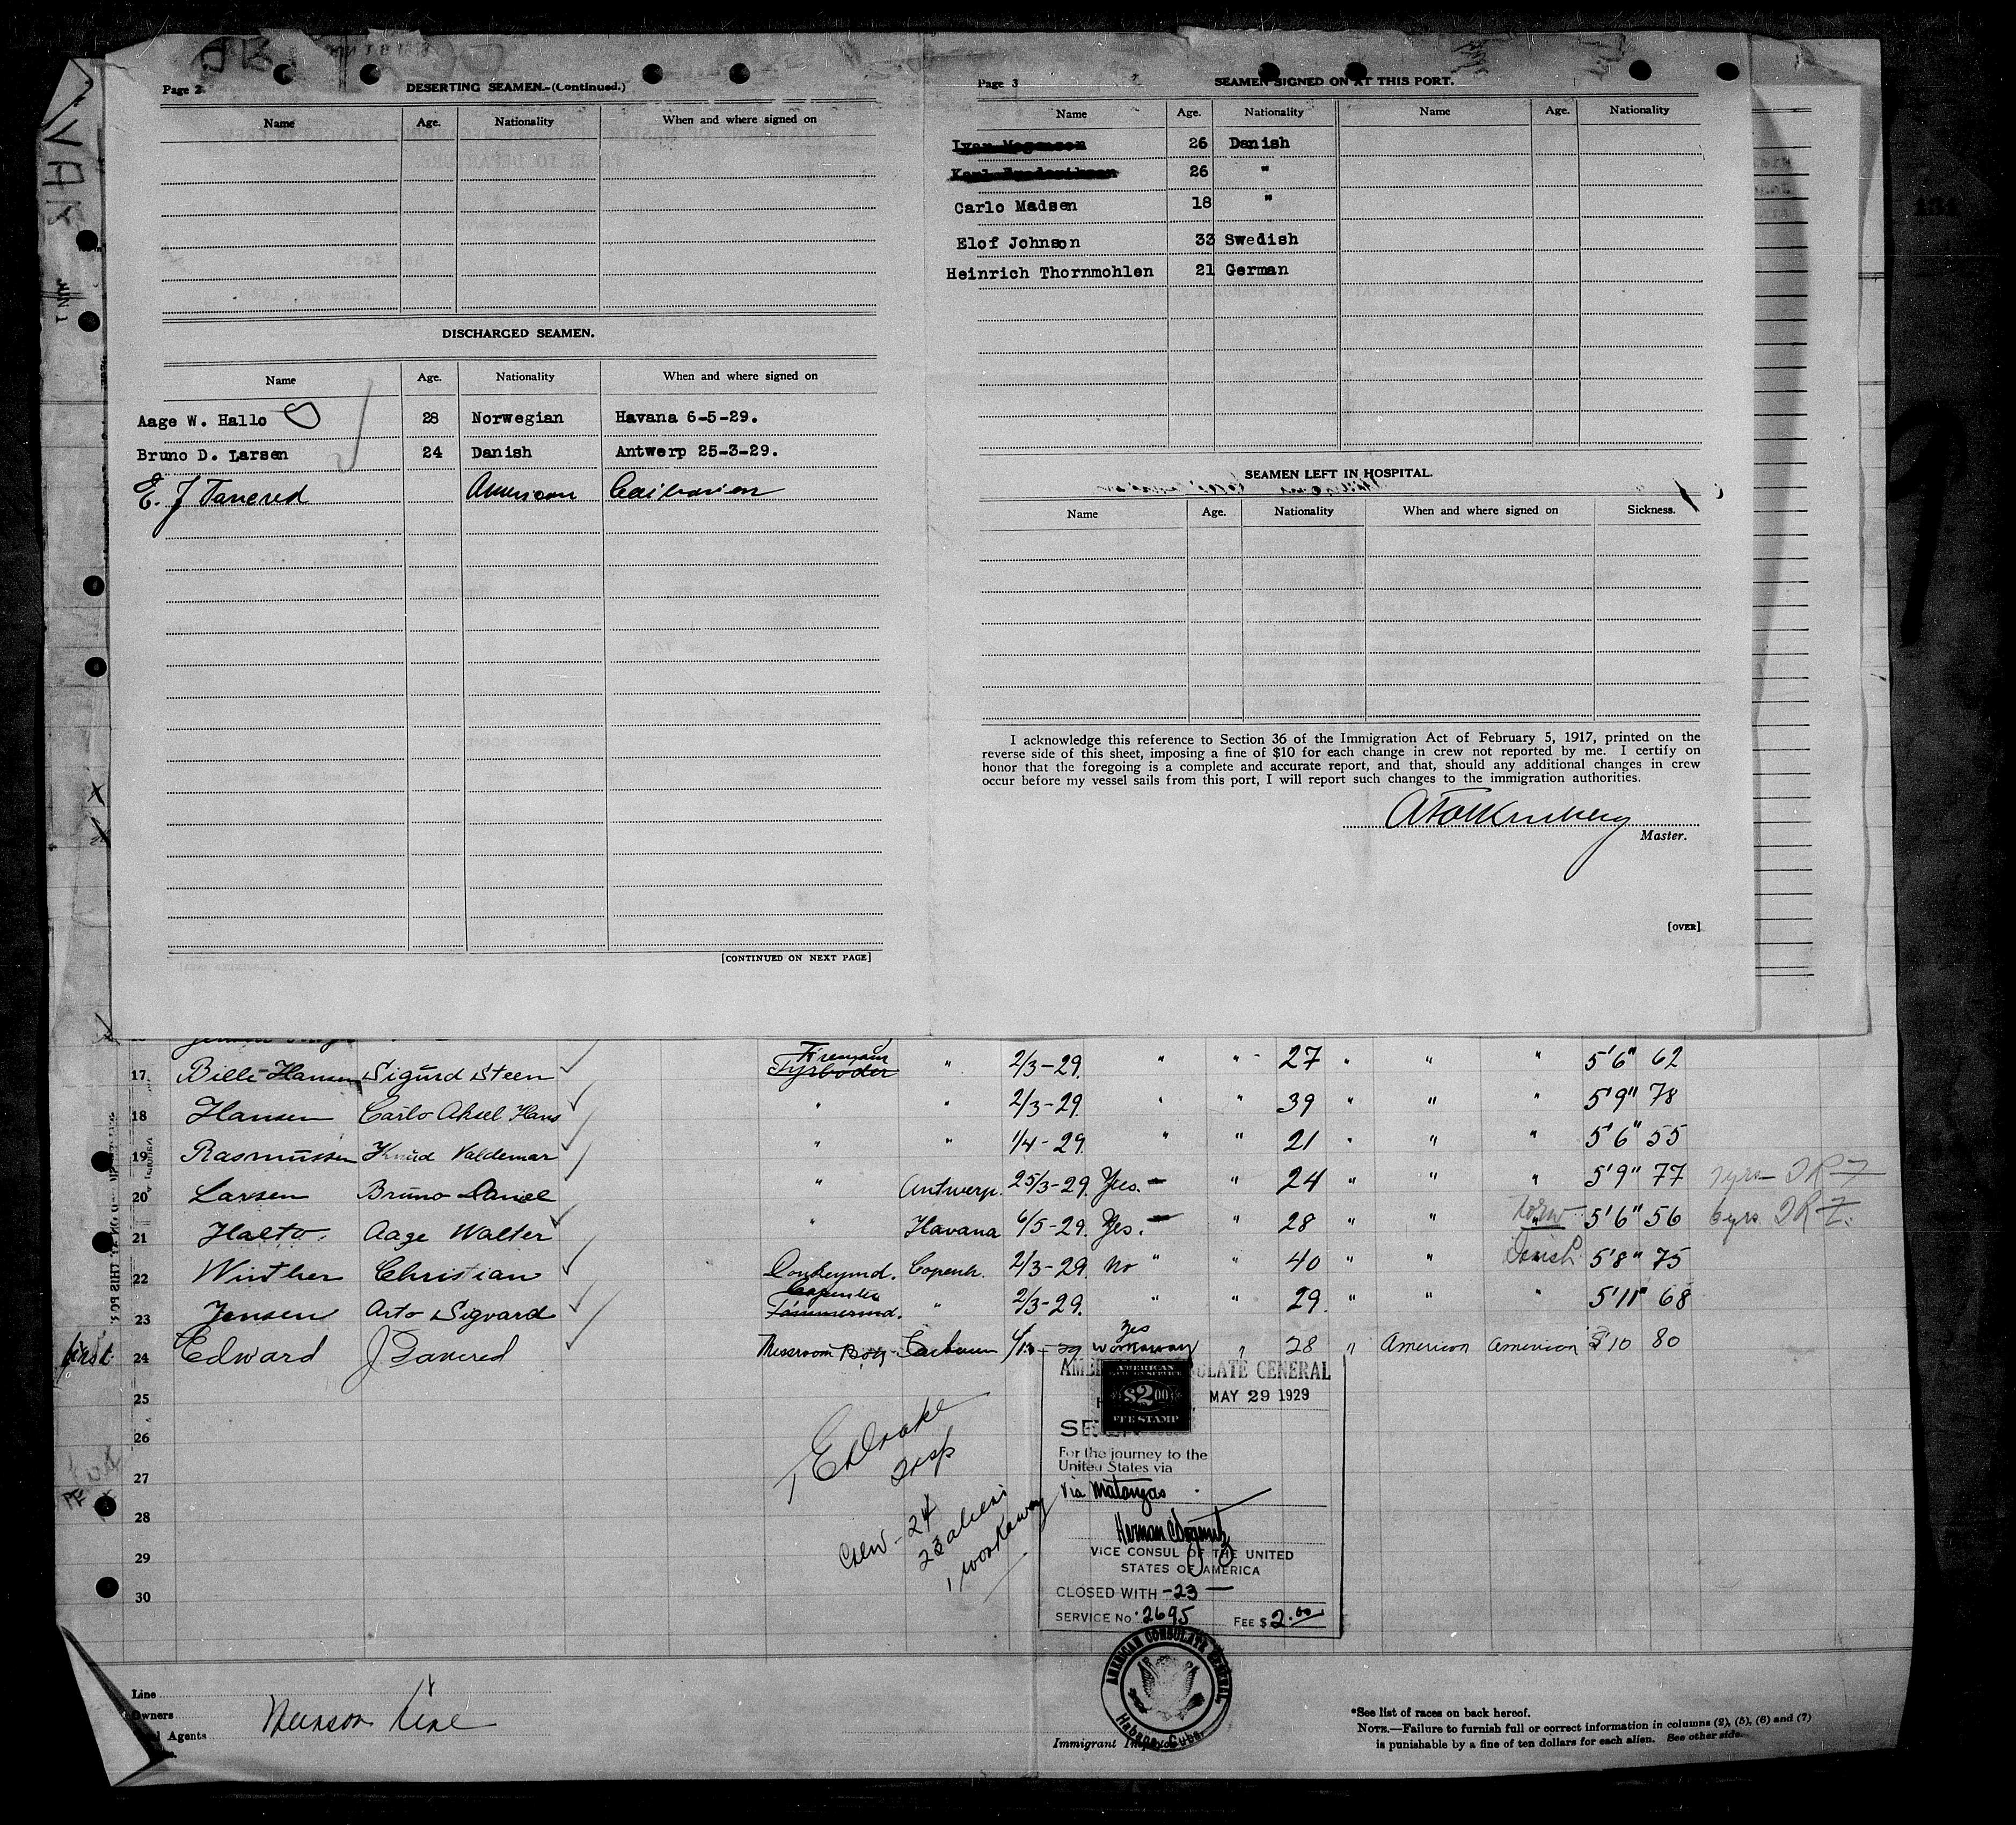 Page 2
DESERTING SEAMEN.-(Continued.)
Name Age. Nationality When and where signed on
DISCHARGED SEAMEN.
Name Age. Nationality When and where signed on
Aage W. Hallo 28 Norwegian Havana 6-5-29.
Bruno D. Larsen 24 Danish Antwerp 25-3-29.
E. J Tancred American Caibarien
[CONTINUED ON NEXT PAGE]
Page 3
SEAMEN SIGNED ON AT THIS PORT.
Name Age. Nationality Name Age. Nationality
26 Danish
26 "
Carlo Madsen 18 "
Elof Johnson 33 Swedish
Heinrich Thornmohlen 21 German
SEAMEN LEFT IN HOSPITAL.
Name Age. Nationality When and where signed on Sickness.
I acknowledge this reference to Section 36 of the Immigration Act of February 5, 1917, printed on the
reverse side of this sheet, imposing a fine of $10 for each change in crew not reported by me. I certify on
honor that the foregoing is a complete and accurate report, and that, should any additional changes in crew
occur before my vessel sails from this port, I will report such changes to the immigration authorities.
Master.
[OVER]
17 Bille-Hansen Sigurd Steen Fireman Fyrbøder " 2/3-29. " " 27 " " " 5'6" 62
18 Hansen Carlo Aksel Hans " " 2/3-29. " " 39 " " " 5'9" 78
19 Rasmussen Knud Valdemar " " 1/4-29. " " 21 " " " 5'6" 55
20 Larsen Bruno Daniel " Antwerp. 25/3-29. Yes. " 24 " " " 5'9" 77
21 Halto. Aage Walter " Havana 6/5-29. Yes. " 28 " " 5'6" 56 6 yrs.
22 Winther Christian Donkeymd. Copenh. 2/3-29. No " " 40 " " Danish 5'8" 75
23 Jensen Arto Sigvard Carpenter Tømmermd. " 2/3-29. " " 29. " " 5'11" 68
first 24 Edward J Tancred Messroom Boy Yes workaway " 28 " American American 5'10 80
25
26
27
28
29
30
Insp
Crew - 24
23 aliens
1 workaway
CONSULATE GENERAL
AMERICAN
$2.00
FEE STAMP
MAY 29 1929
For the journey to the
United States via
Via Matanzas
VICE CONSUL OF THE UNITED
STATES OF AMERICA
CLOSED WITH -23-
SERVICE No. 2695 FEE $ 2.00
AMERICAN CONSULATE GENERAL
Habana, Cuba.
Line
Owners
Agents
Munson Line
Immigrant Inspector
*See list of races on back hereof.
NOTE.—Failure to furnish full or correct information in columns (2), (5), (6) and (7)
is punishable by a fine of ten dollars for each alien. See other side.